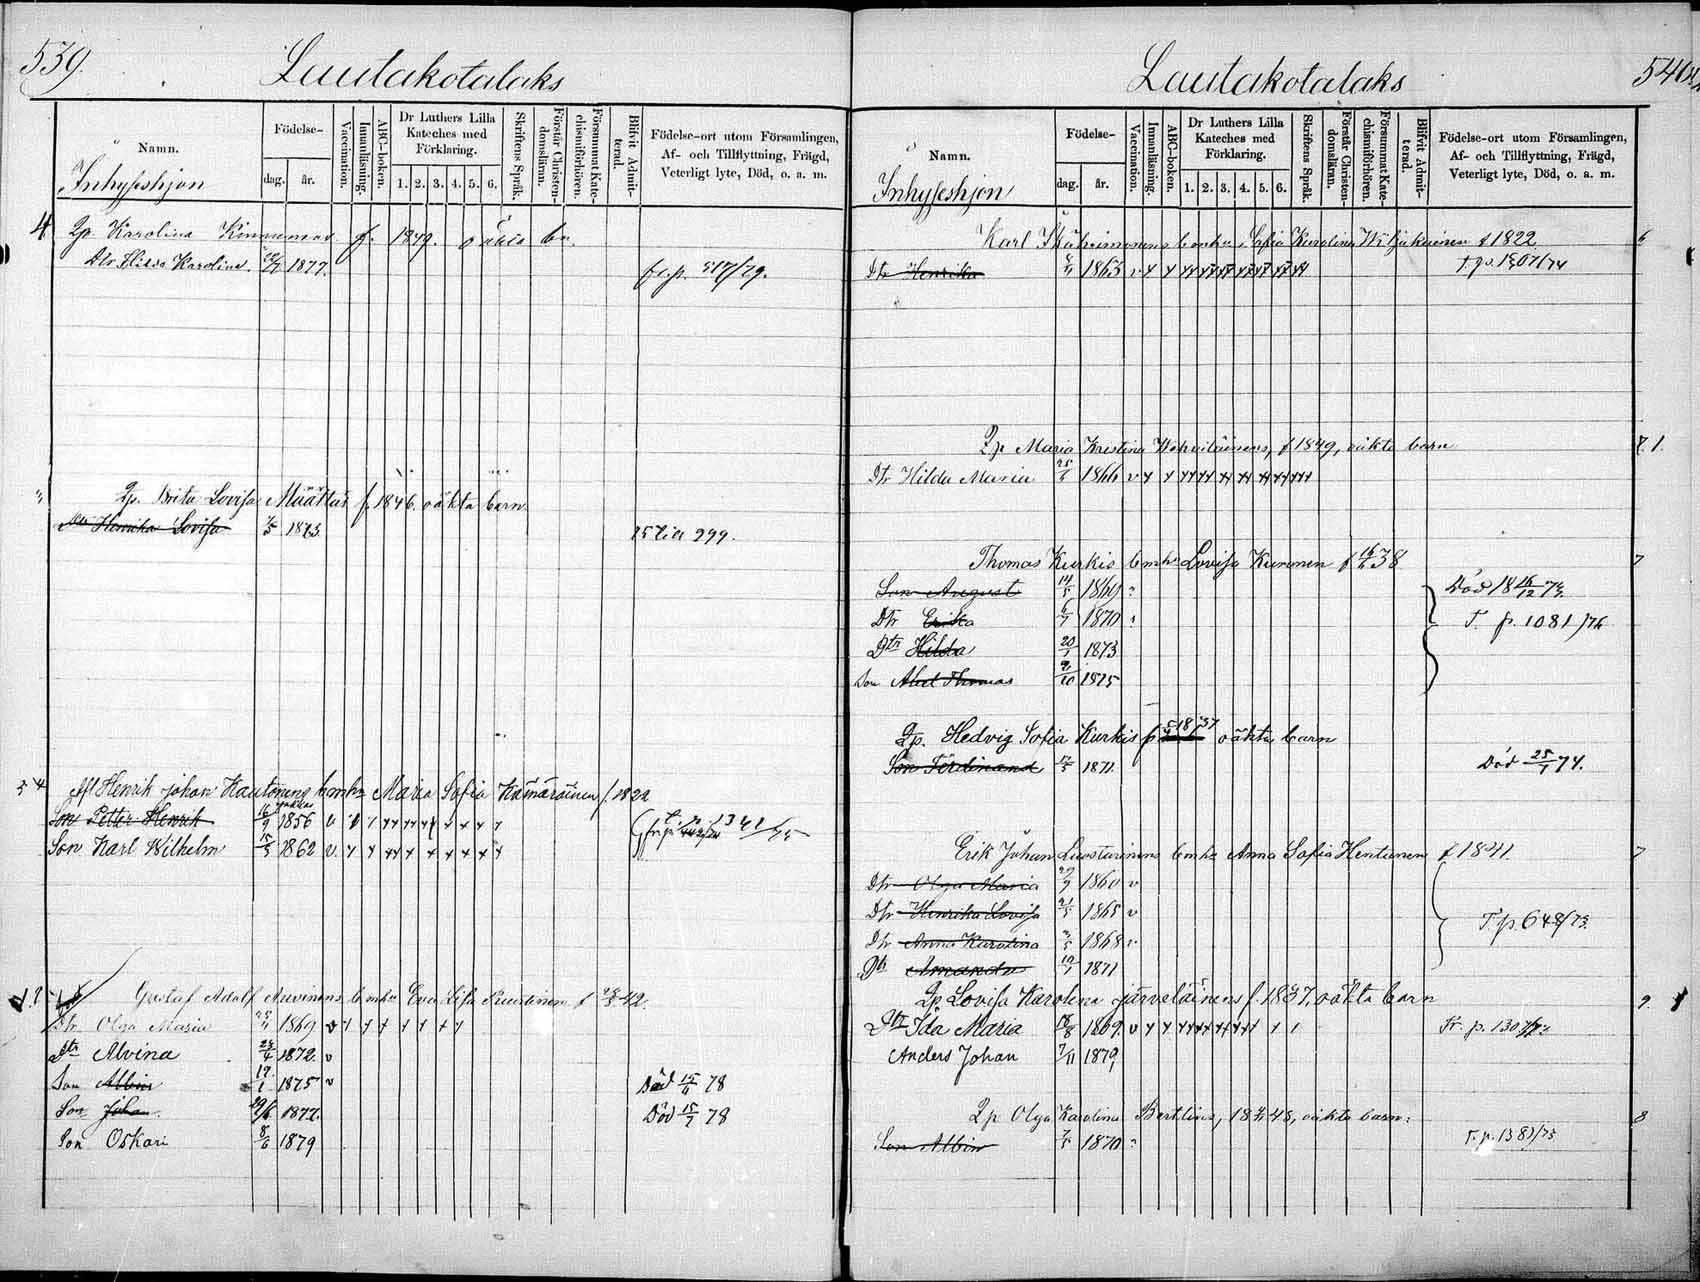 539.
Lautakotalaks
Namn.
Födelse-
dag.
år.
Vaccination.
Innanläsning.
ABC-boken.
Dr Luthers Lilla Kateches med Förklaring.
1. 2. 3. 4. 5. 6.
Skriftens Språk.
Förstår Christendomsläran.
Försummat Katechismiförhören.
Blifvit Admitterad.
Födelse-ort utom Församlingen, Af- och Tillflyttning, Frägd, Veterligt lyte, Död, o. a. m.
Inhyseshjon
4 Qp. Karolina Kinnunens f. 1849. oäkta bn.
Dtr Hilda Karolina. 1877. fr. p. 517/79.
Qp. Brita Lovisa Määttäs f. 1846. oäkta barn.
Dtr Henrika Lovisa 1873. 75 till 999.
Afl Henrik Johan Kautonens bmhu Maria Sofia Kämäräinen f. 1822
Son Petter Henrik 16/9 1856 v
Son Karl Wilhelm 15/5 1862 v
Gustaf Adolf Auvinens bmhu Eva Lisa Ruuttinen f 42.
Dtr Olga Maria 1869 v
Dtr Alvina 23/4 1872. v
Son Albin 19/1 1875 v Död 15/6 78
Son Johan. 29/6 1877. Död 15/7 78
Son Oskari 8/6 1879
Lautakotalaks
Namn.
Födelse-
dag.
år.
Vaccination.
Innanläsning.
ABC-boken.
Dr Luthers Lilla Kateches med Förklaring.
1. 2. 3. 4. 5. 6.
Skriftens Språk.
Förstår Christendomsläran.
Försummat Katechismiförhören.
Blifvit Admitterad.
Födelse-ort utom Församlingen, Af- och Tillflyttning, Frägd, Veterligt lyte, Död, o. a. m.
Inhyseshjon
Karl bmhu Sofia Karolina Wiljakainen f 1822. 6
Dtr Henrika 1863 v T. p. 1307/74
Qp Maria Kristina Wohvilainens, f 1849, oäkta barn 7.1.
Dtr Hilda Maria 25/6 1866 v
Thomas Kurkis bmhu Lovisa Kuronen f 38 7
Son August 14/5 1869 Död 18 16/12 73.
Dtr Erika 6/7 1870 T. p. 1081/76
Dtr Hilda 20/1 1873
Son Abel Thomas 9/10 1875
Qp. Hedvig Sofia Kurkis f 1837 oäkta barn
Son Ferdinand 1871. Död 25/1 74.
Erik Johan Luosturinens bmhu Anna Sofia Hentunen f 1841. 7
Dtr Olga Maria 1860 v
Dtr Henrika Lovisa 21/5 1865 v T. p. 648/73.
Dtr Anna Karolina 1868 v
Dtr Amanda 19/1 1871
Qp Lovisa Karolina Järveläinens f. 1837, oäkta barn 9.
Dtr Ida Maria 1869. v Fr. p. 1307/73
Anders Johan 7/11 1879,
Qp Olga Karolina Bertlins, 48, oäkta barn: 8
Son Albin 1870 T. p. 1383/73